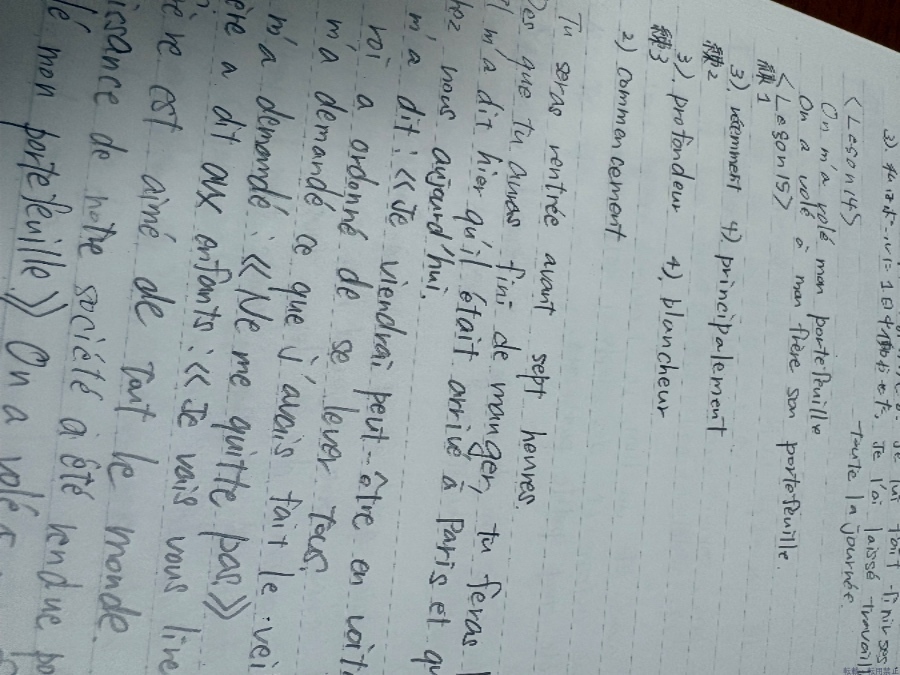 je lui fait finir ses
3). 1日中 Je l'ai laissé travaill
toute la journée.
<Leson14>
On m'a volé mon portefeuille
On a volé à mon frère son portefeuille.
<Leson15>
練1
3). récemment 4). principalement
練2
3). profondeur 4). blancheur
練3
2) commencement
Tu seras rentrée avant sept heures.
Dès que tu auras fini de manger, tu feras
m'a dit hier qu'il était arrivé à Paris et qu
chez nous aujourd'hui.
m'a dit: «Je viendrai peut-être en voit
roi a ordonné de se lever tous.
m'a demandé ce que j'avais fait le vei
m'a demandé: «Ne me quitte pas.»
ère a dit aux enfants: «Je vais vous lire
ère est aimé de tout le monde.
issance de notre société a été rendue po
lé mon portefeuille.» On a volé